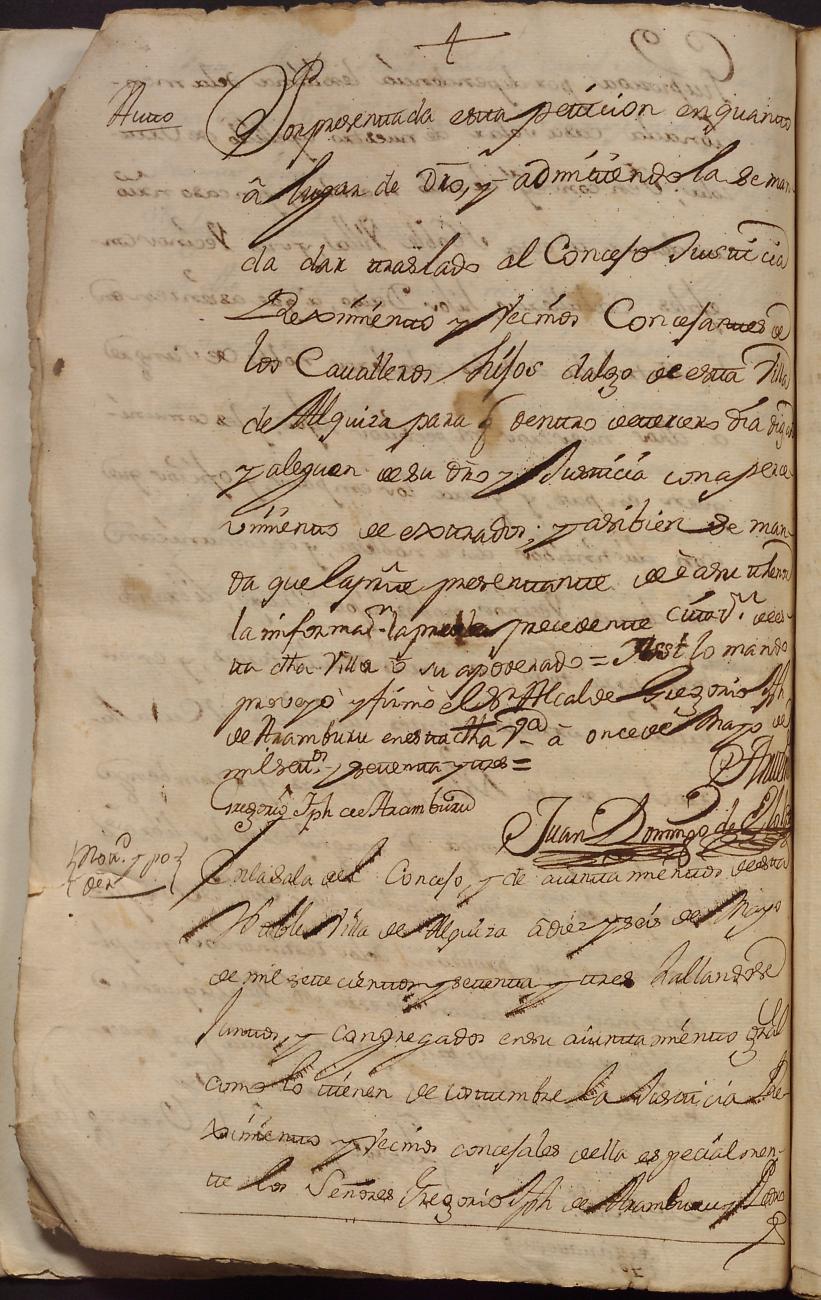 Auto
Por presentada esta peticion en quanto
â lugar de Dro, y admitiendola se man-
da dar traslado al Concejo Justicia
Reximiento y Vecinos Concejantes de
los Cavalleros hijos dalgo de esta Villa
de Alquiza para q dentro de tercero dia digan
y aleguen de su dro y Justicia con aperce
vimiento de extrados; y asibien se man-
da que la prte presentante dê
la informaon precedente citaon de es-
ta dha Villa ô su apoderado = Assi lo mando
proveyò y firmò el Sr Alcalde Gregorio Jph
de Aramburu en esta dha Va â once de Mayo de
mil settos y setenta y tres =
Gregorio Jph de Aramburu
Juan Domingo de
Noton y po
der
En la sala del Concejo, y de aiuntamiento de esta
Noble Villa de Alquiza â diez y seis de Mayo
de mil sete cientos y setenta y tres hallandose
Juntos, y congregados en su aiuntamiento gral
como lo tienen de costumbre la Justicia Re-
ximiento y Vecinos concejales de ella especialmen-
te los Señores Gregorio Jph de Aramburu, Pedro